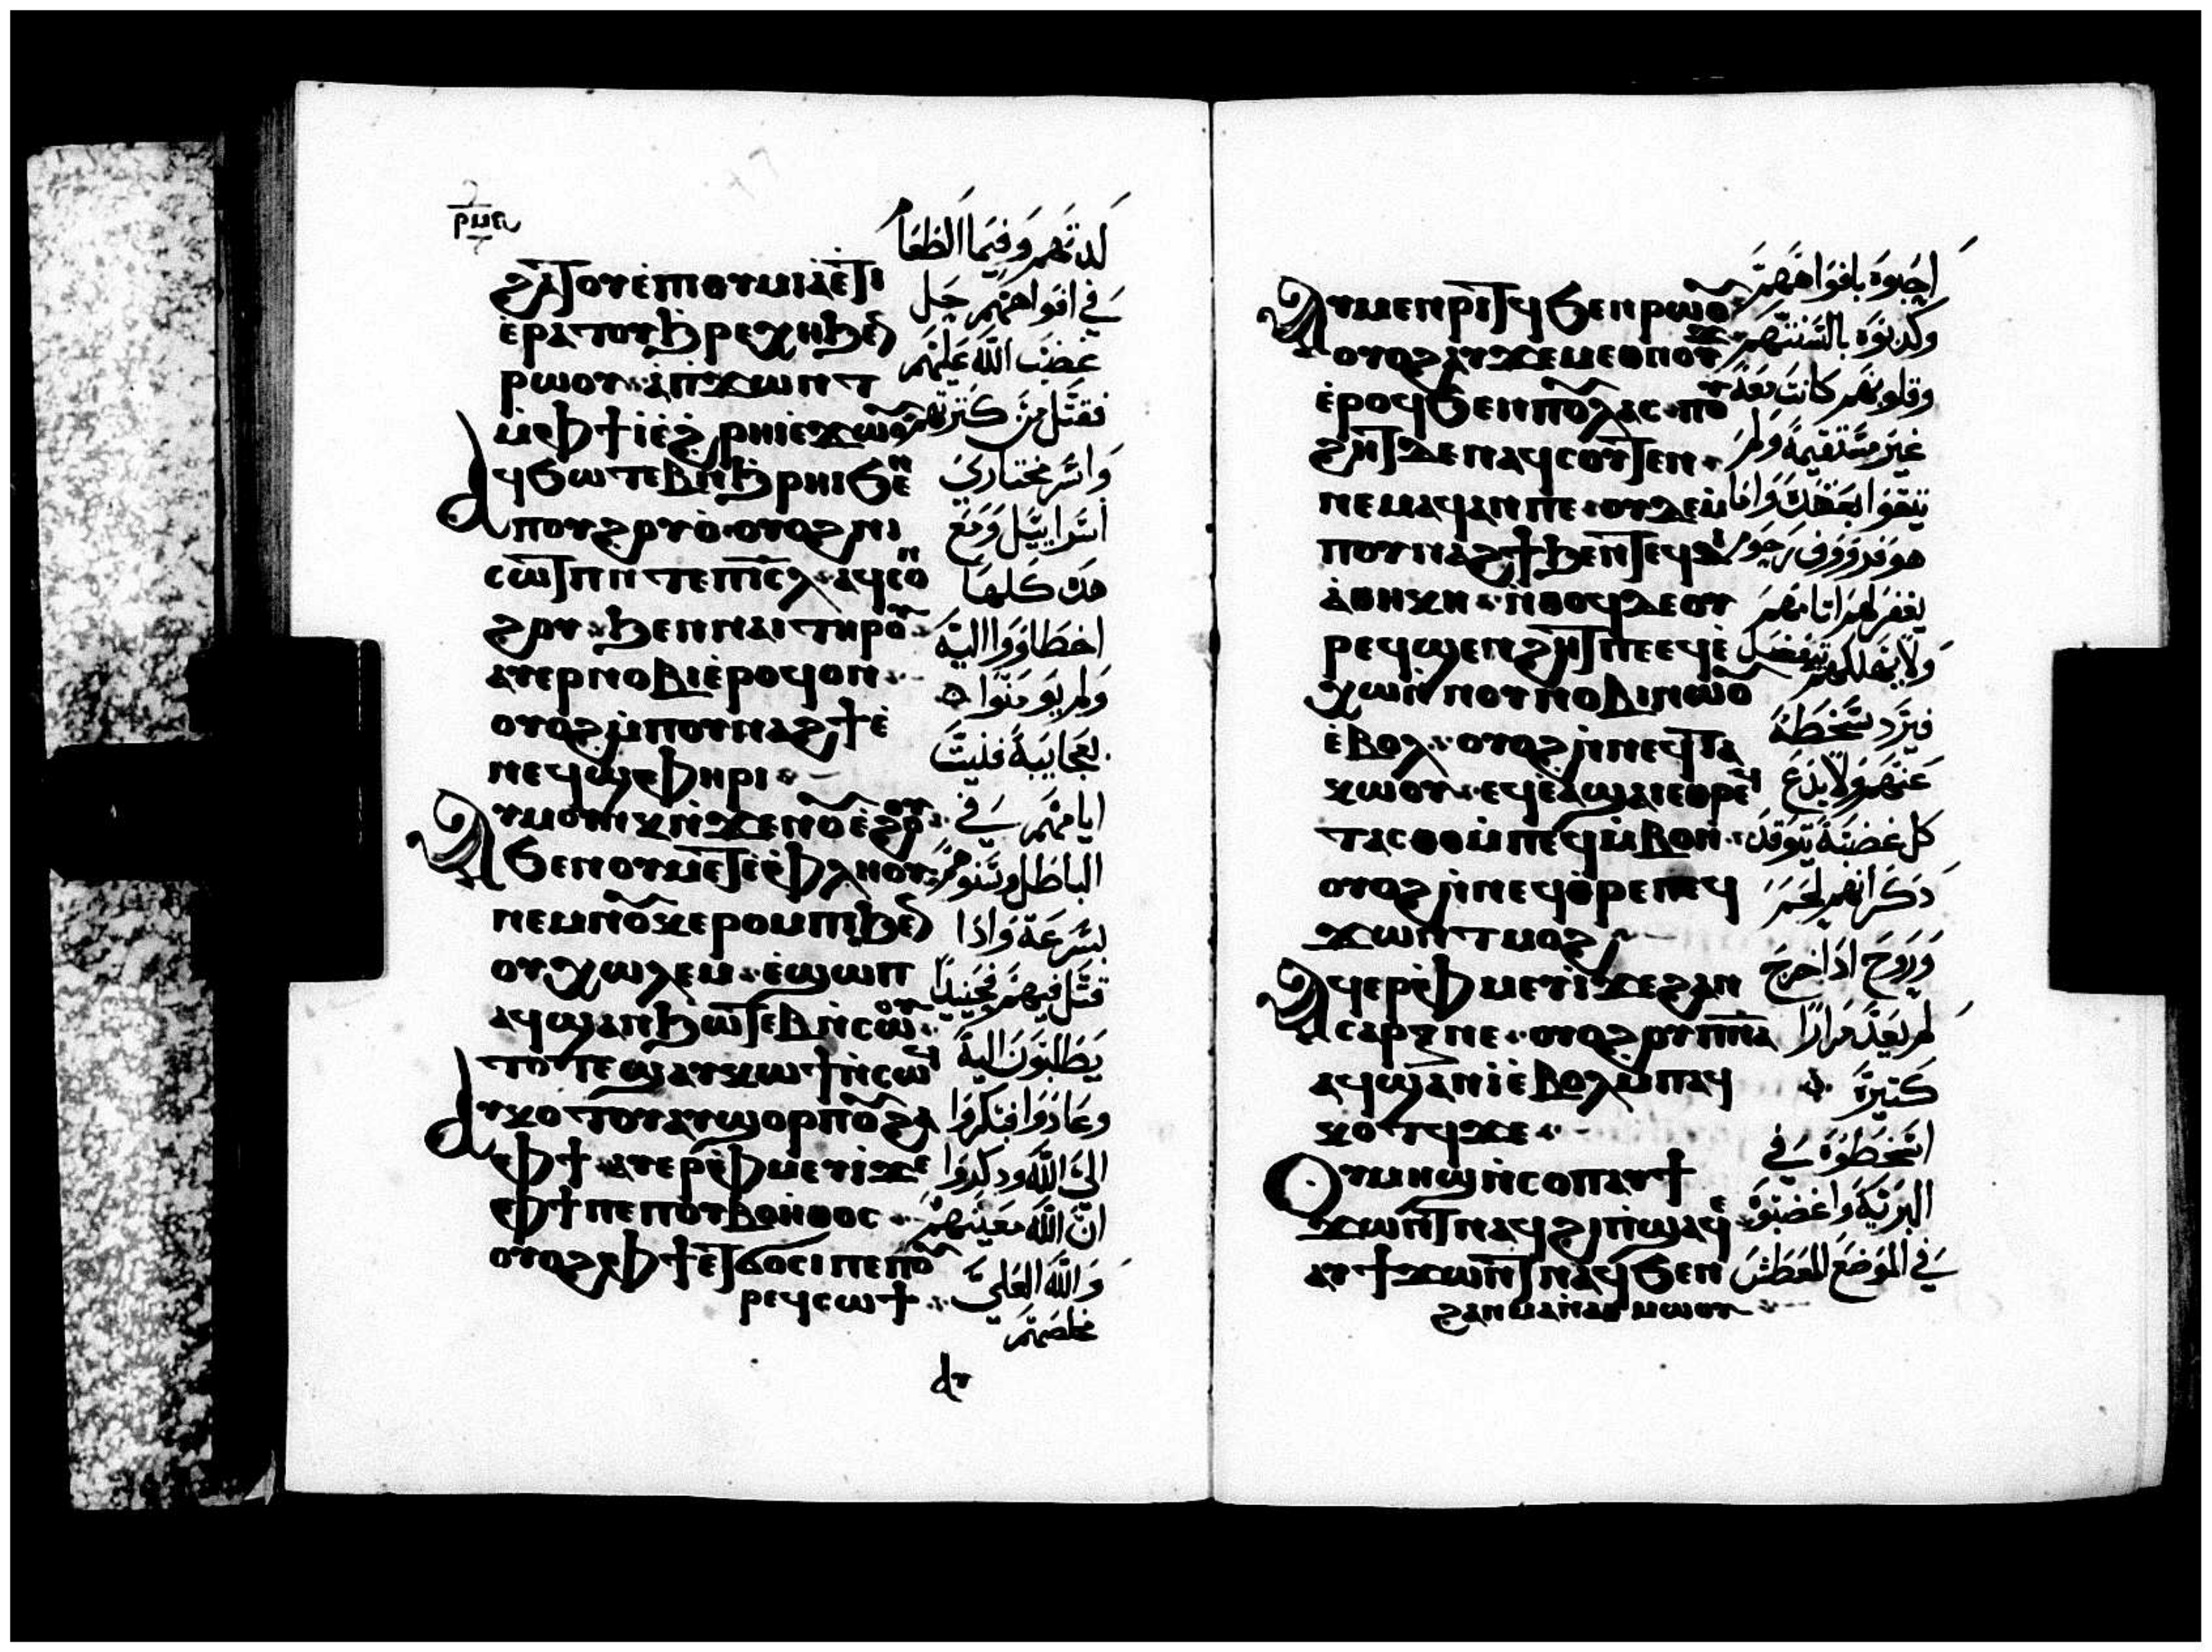 ⲣⲙⲁ
ϩⲁϯⲟⲩⲉ̀ⲙⲟⲩⲙⲓⲁⲉ̀ϯⲓ
ⲉ̀ⲣⲁⲧⲟⲩϧⲣⲉⲭⲏϧⲉ̅
ⲣⲱⲟⲩ ⲁ̀ⲡϫⲱⲛⲧ
ⲙ̀ⲫϯⲓ̀ⲉ̀ϩ̀ⲣⲏⲓⲉϫⲱⲟ̅ⲩ
ⲁϥϧⲱⲧⲉⲃⲛ̀ϧⲣⲏⲓϧⲉⲛ
ⲡⲟⲩϩⲟⲩⲟ̀ ⲟⲩⲟϩⲛⲓ
ⲥⲱⲧⲡⲛ̀ⲧⲉⲡⲓⲥ̅ⲗ ⲁϥⲥⲟⲛ
ϩⲟⲩ ϧⲉⲛⲛⲁⲓⲧⲏⲣⲟ̅ⲩ
ⲁⲩⲉⲣⲛⲟⲃⲓⲉ̀ⲣⲟϥⲟⲛ
ⲟⲩⲟϩⲙ̀ⲡⲟⲩⲛⲁϩϯⲉ̀
ⲛⲉϥϣⲫⲏⲣⲓ
ⲁⲩⲙⲟⲩⲛⲕⲛ̀ϫⲉⲛⲟ̅ⲩⲉ̀ϩⲟⲟⲩ
ϧⲉⲛⲟⲩⲙⲉⲧⲉⲫⲗⲏⲟⲩ
ⲛⲉⲙⲛⲟ̅ⲩⲕⲉⲣⲟⲙⲡⲓϧⲉ̅
ⲟⲩⲭⲱⲗⲉⲙ ⲉ̀ϣⲱⲡ
ⲁϥϣⲁⲛϧⲱⲧⲉⲃⲙ̀ⲙⲱⲟⲩ
ⲧⲟⲧⲉϣⲁⲩⲕⲱϯⲛ̀ⲥⲱϥ
ⲁⲩⲕⲟⲧⲟⲩⲁⲩϣⲟⲣⲡⲟ̅ⲩϩⲁ
ⲫϯ ⲁⲩⲉⲣⲫⲙⲉⲩⲓ̀ϫⲉ
ⲫϯⲡⲉⲡⲟⲩⲃⲟⲏ̀ⲑⲟⲥ
ⲟⲩⲟϩⲫϯⲉⲧϭⲟⲥⲓⲡⲉⲡⲟ̅ⲩ
ⲣⲉϥⲥⲱϯ
ⲁⲩ
لدتهم وفيما الطعام
في افواههم حل
غضب الله عليهم
فقتل من كثرتهم
واسر مختاري
اسرايل ومع
هذه كلها
اخطاووا اليه
ولم يومنوا
بعجايبه ففنيت
ايامهم في
الباطل وسنوهم
بسرعة واذا
قتل فيهم فحينيدا
يطلبون اليه
وعادوا فبكروا
الي الله ودكروا
ان الله معينهم
والله العلي
مخلصهم
ⲁⲩⲙⲉⲛⲣⲓⲧϥϧⲉⲛⲣⲱⲟ̅ⲩ
ⲟⲩⲟϩⲁⲩϫⲉⲙⲉⲑⲛⲟⲩϫ
ⲉ̀ⲣⲟϥϧⲉⲛⲡⲟ̅ⲩⲗⲁⲥ ⲡⲟⲩ
ϩⲏⲧⲇⲉⲛⲁϥⲥⲟⲩⲧⲉⲛ
ⲛⲉⲙⲁϥⲁⲛⲡⲉ ⲟⲩⲇⲉⲙ̀
ⲡⲟⲩⲛⲁϩϯϧⲉⲛⲧⲉϥⲇⲓ
ⲁ̀ⲑⲏⲕⲏ ⲛ̀ⲑⲟϥⲇⲉⲟⲩ
ⲣⲉϥϣⲉⲛϩⲏⲧⲡⲉⲉϥⲉ̀
ⲭⲱⲛ̀ⲛⲟⲩⲛⲟⲃⲓⲛⲱⲟ̅ⲩ
ⲉ̀ⲃⲟⲗ ⲟⲩⲟϩⲛ̀ⲛⲉϥⲧⲁ
ⲕⲱⲟⲩ ⲉϥⲉ̀ⲁϣⲁⲓⲉⲑⲣⲉϥ
ⲧⲁⲥⲑⲟⲙ̀ⲡⲉϥⲙ̀ⲃⲟⲛ
ⲟⲩⲟϩⲛ̀ⲛⲉϥⲑⲣⲉⲡⲉϥ
ϫⲱⲛⲧⲙⲟϩ
ⲁϥⲉⲣⲫⲙⲉⲩⲓ̀ϫⲉϩⲁⲛ
ⲥⲁⲣⲝⲛⲉ ⲟⲩⲟϩⲟⲩⲡ̅ⲛⲁ
ⲁϥϣⲁⲛⲓ̀ⲉ̀ⲃⲟⲗⲙ̀ⲡⲁϥ
ⲕⲟⲧϥϫⲉ
ⲟⲩⲙⲏϣⲛ̀ⲥⲟⲡⲁⲩϯ
ϫⲱⲛⲧⲛⲁϥϩⲓⲡ̀ϣⲁϥⲉ
ⲁⲩϯϫⲱⲛⲧⲛⲁϥϧⲉⲛ
ϩⲁⲛⲙⲁⲛ̀ⲁⲑⲙⲱⲟⲩ
احبوه بافواههم
وكدبوه بالسنتهم
وقلوبهم كانت بعد
غير مستقيمة ولم
يتقوا بعهده واما
هو فرووف رحوم
يغفر لهم اتامهم
ولا يهلكهم يتفضل
فيرد سخطه
عنهم ولا يدع
كل غضبه يتوقد
دكر انهم لحم
وروح ادا خرج
لم يعد مرارا
كتيرة
اسخطوه في
البرية واغضبوه
في الموضع المعطش